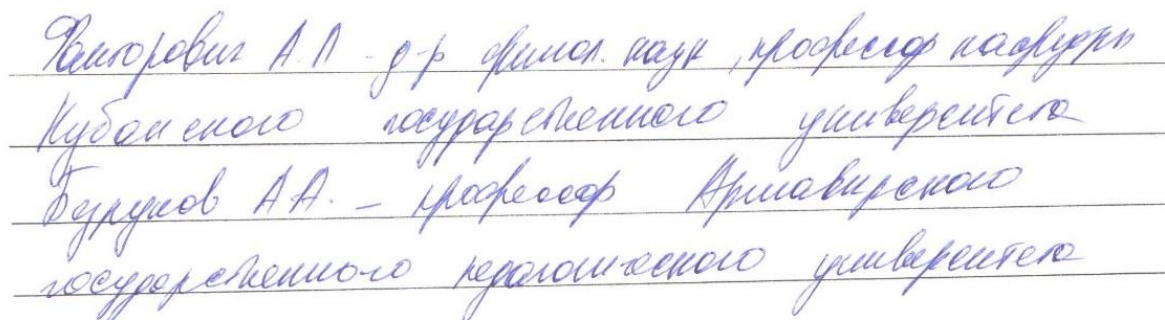 Факторович А.Л - д-р филол. наук, профессор кафедры
Кубанского государственного университета
Безруков А.А. – профессор Армавирского
государственного педагогического университета